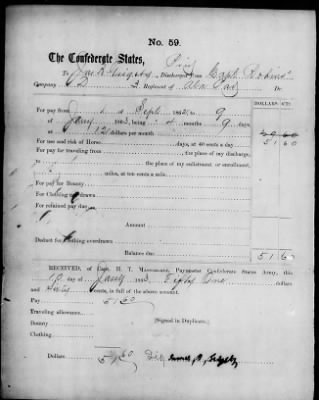 No. 59.
The Confederate States,
To Discharged from Capt.
Company Regiment of Ala Cav Dr.
DOLLARS. CTS
For pay from 1 Sept 1862 to 9
of Jany 1863, being 4 months 9 days,
at 12 dollars per month 51 60
For use and risk of Horse days, at 40 cents a day
For pay for traveling from the place of my discharge,
to the place of my enlistment, or enrollment,
miles, at ten cents a mile
For pay for Bounty
For Clothing not drawn
For retained pay due
Amount
Deduct for Clothing overdrawn
Balance due 51 60
RECEIVED, of Capt. H. T. Paymaster Confederate States Army, this
day of Jany 1863, Fifty One dollars
and Sixty cents, in full of the above account.
Pay 51 60
Traveling allowance.
Bounty (Signed in Duplicate.)
Clothing.
Dollars 51 60